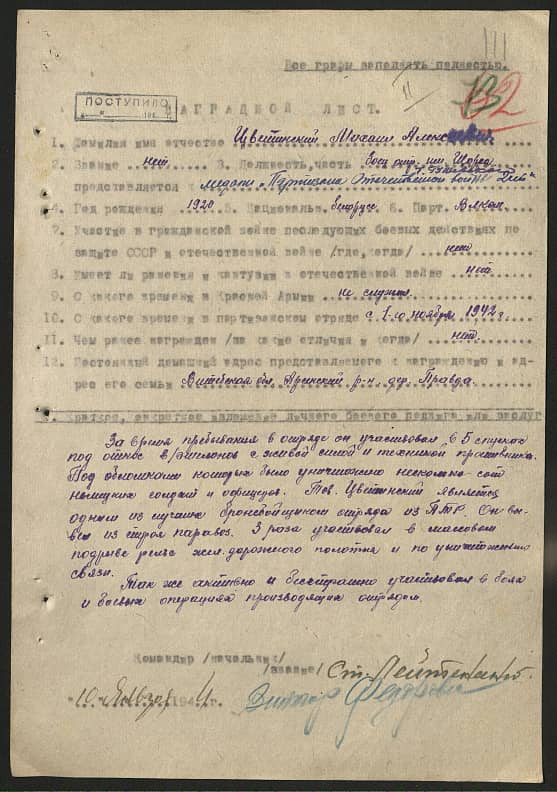 Все графы заполнять полностью.
132
ПОСТУПИЛО
НАГРАДНОЙ ЛИСТ.
1. Фамилия имя отчество Цветинский Михаил Алексеевич
2. Звание нет 3. Должность, часть боец им. Щорса
представляется к медали "Партизана Отечественной войны"
4. Год рождения 1920 5. Национальн. белорус 6. Парт. Влксм
7. Участие в гражданской войне последующих боевых действиях по
защите СССР и отечественной войне /где, когда/ нет
8. Имеет ли ранения и контузии в отечественной войне нет
9. С какого времени в Красной Армии не служил
10. С какого времени в партизанском отряде с 1-го ноября 1942 г
11. Чем ранее награжден /за какие отличия и когда/ нет
12. Постоянный домашний адрес представляемого к награждению и ад-
рес его семьи Витебская обл. р-н дер. Правда
Краткое, конкретное изложение личного боевого подвига или заслуг
За время пребывания в отряде он участвовал в 5 спусках
под откос в/эшелонов с живой силой и техникой противника.
Под обломками которых было уничтожено несколько сот
немецких солдат и офицеров. Тов. Цветинский является
одним из лучших бронебойщиком отряда из ПТР. Он вы-
вел из строя паровоз. 3 раза участвовал в массовом
подрыве рельс жел.дорожного полотна и по уничтожению
связи.
Так же активно и бесстрашно участвовал в боях
и боевых операциях производящих отрядом.
Командир /начальник/
/звание/ Ст. Лейтенант.
"10" января 194 г.